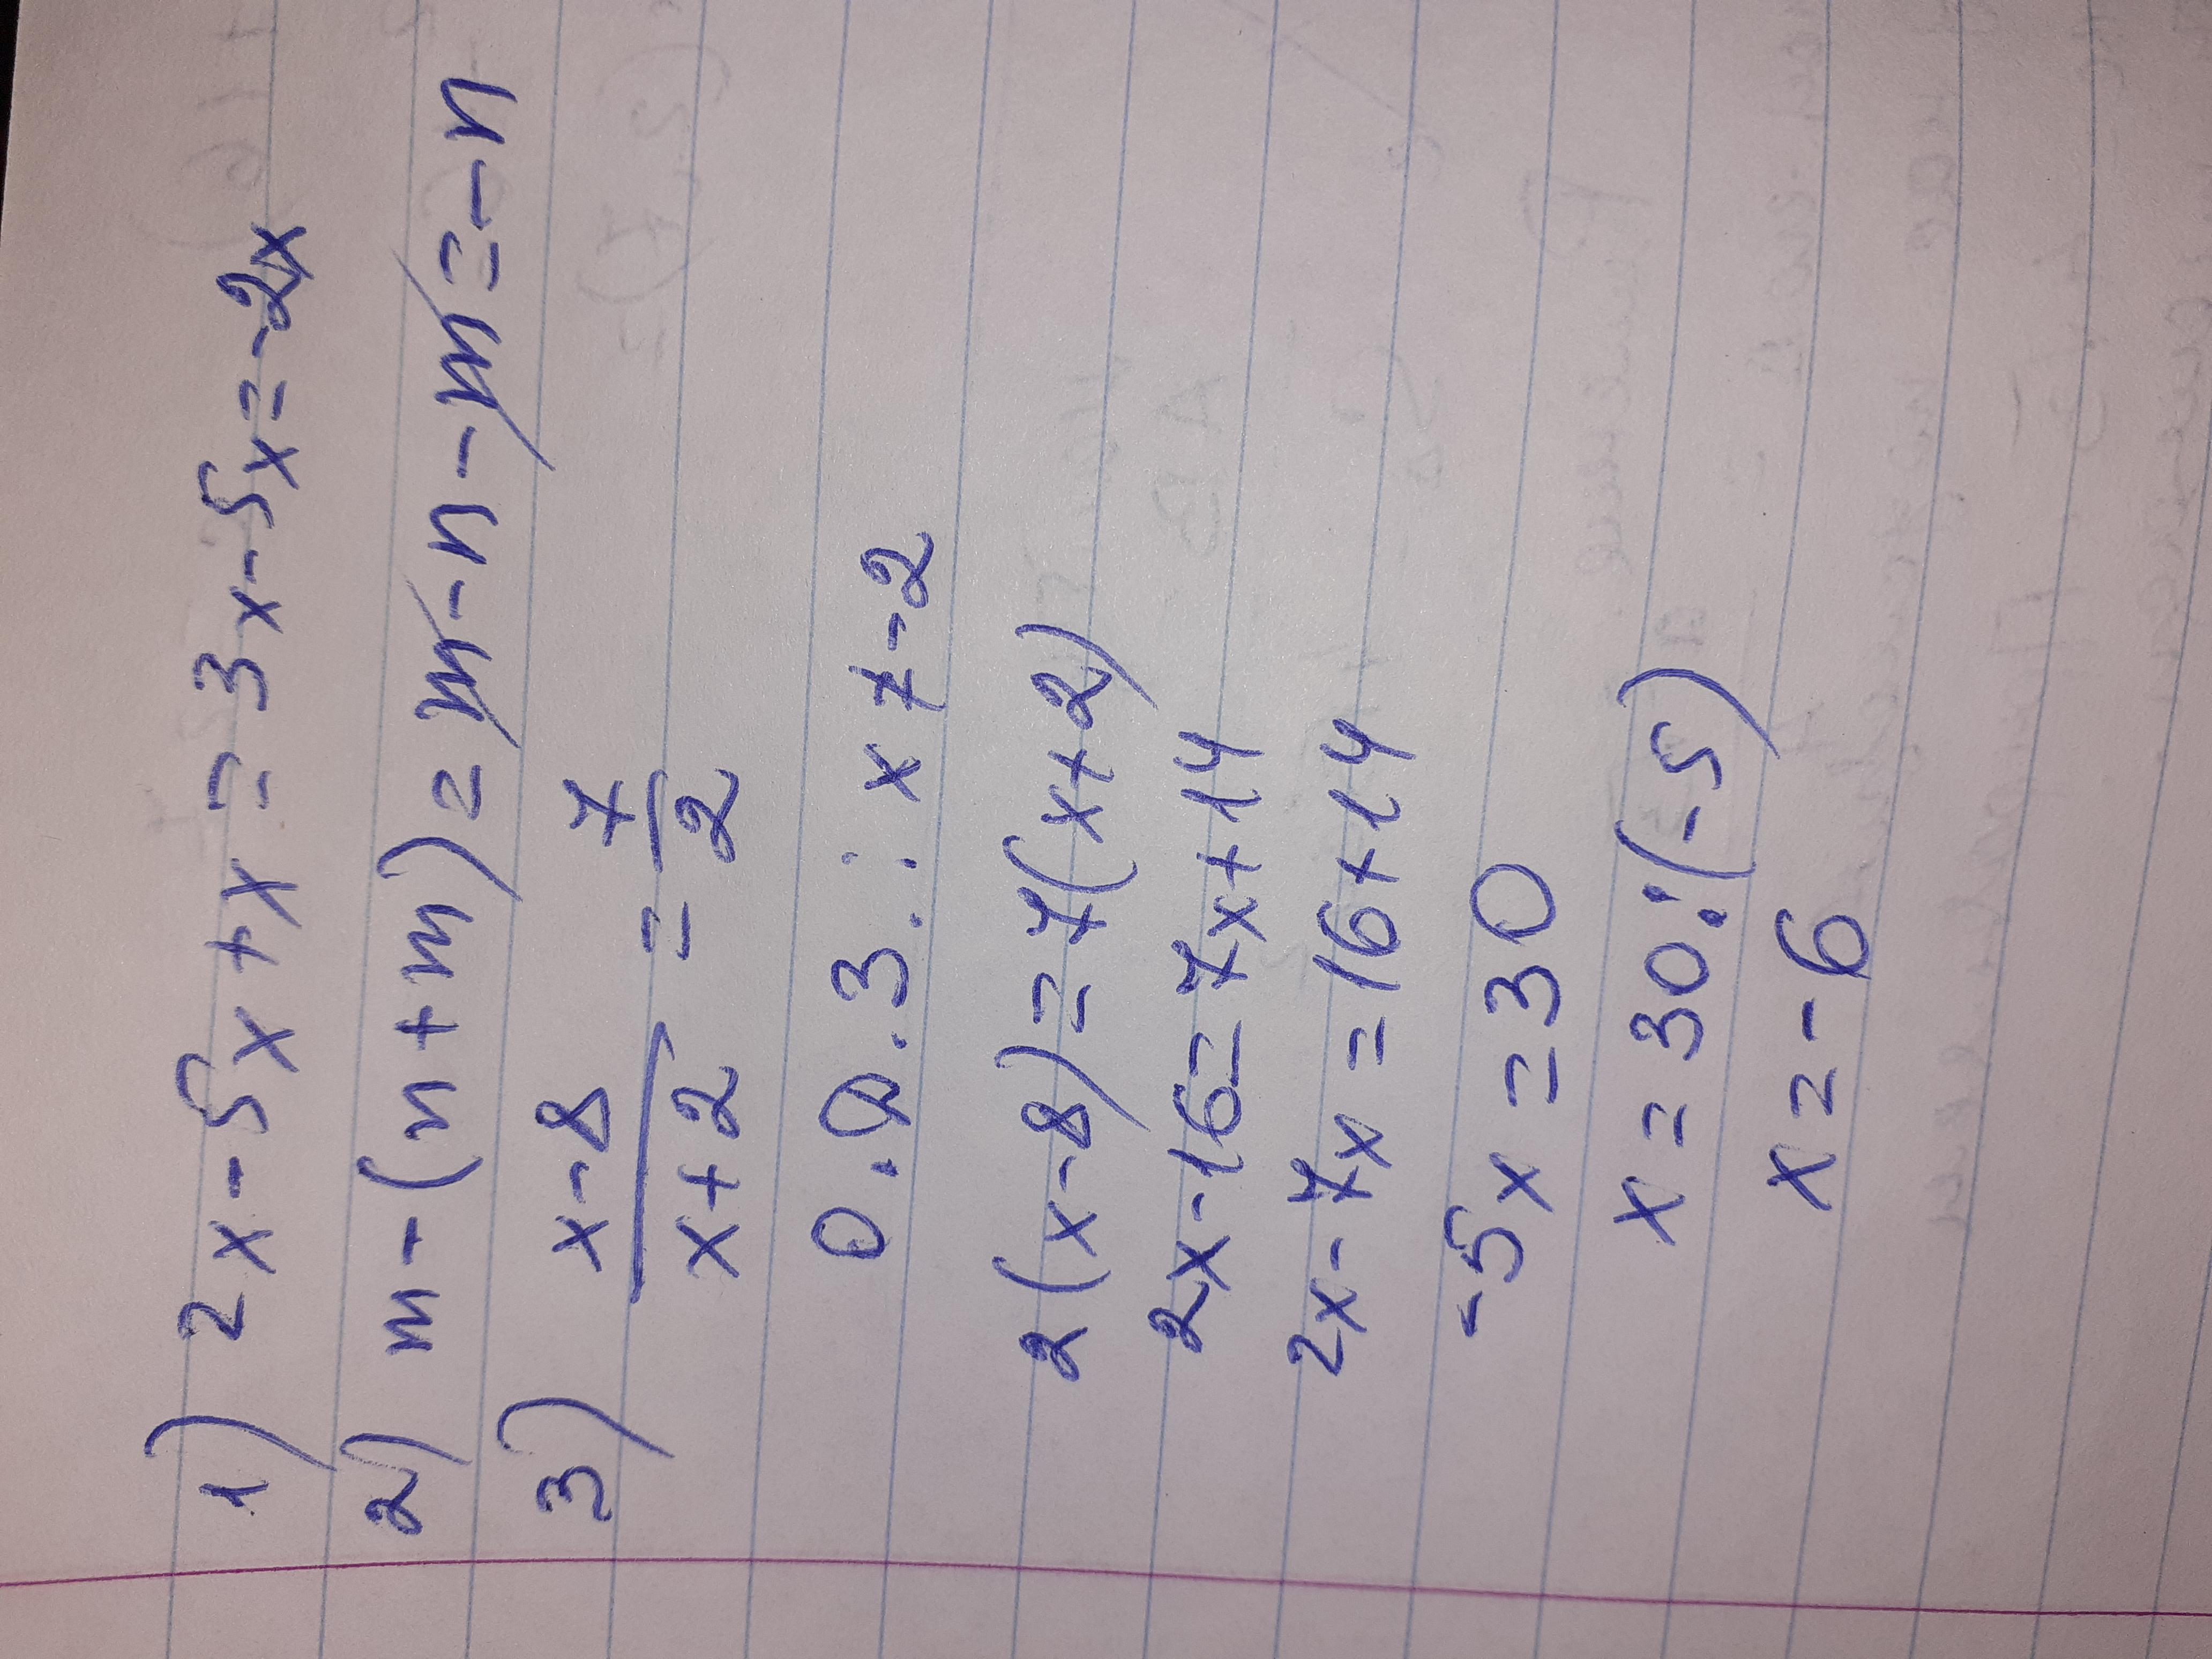 1) 2x-5x+x=3x-5x=-2x
2) m-(n+m)=m-n-m=-n
3) x-8/x+2 = 7/2
O.D.3.: x ≠ -2
2(x-8)=7(x+2)
2x-16=7x+14
2x-7x=16+14
-5x=30
x=30:(-5)
x=-6